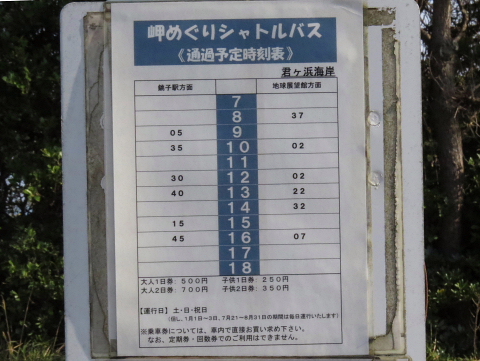 岬めぐりシャトルバス
《通過予定時刻表》
君ヶ浜海岸
銚子駅方面 地球展望館方面
7
8 37
05 9
35 10 02
11
30 12 02
40 13 22
14 32
15 15
45 16 07
17
18
大人1日券:500円 子供1日券:250円
大人2日券:700円 子供2日券:350円
【運行日】 土・日・祝日
(但し、1月1日~3日、7月21~8月31日の期間は毎日運行いたします)
※乗車券については、車内で直接お買い求め下さい。
なお、定期券・回数券でのご利用はできません。